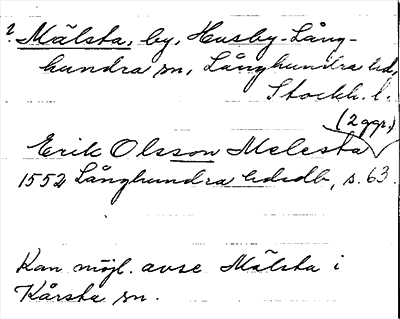 ? Mälsta, by, Husby-Lång-
hundra sn, Långhundra hd,
Stockh. l.
(2 ggr.)
Erik Olsson Melesta
1552 Långhundra hdsdb, s. 63.
Kan möjl. avse Mälsta i
Kårsta sn.